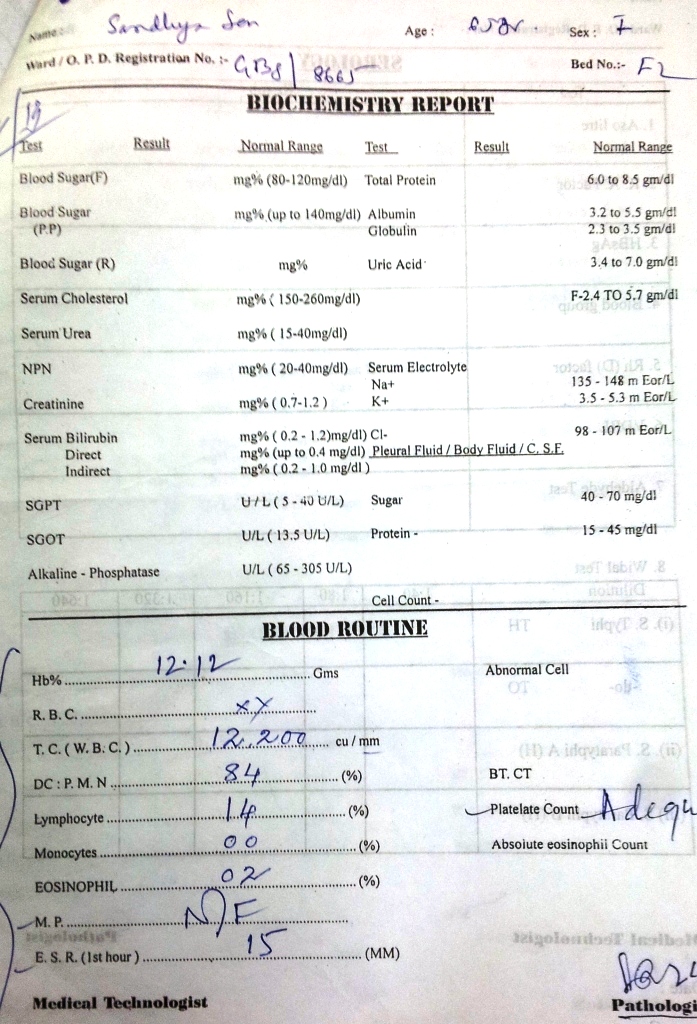 Name: Sandhya Sen Age : 65 yr. Sex : F
Ward / O. P. D. Registration No. :- GB8/8665 Bed No.:- F2
19
BIOCHEMISTRY REPORT
Test Result Normal Range Test Result Normal Range
Blood Sugar(F) mg% (80-120mg/dl) Total Protein 6.0 to 8.5 gm/dl
Blood Sugar mg% (up to 140mg/dl) Albumin 3.2 to 5.5 gm/dl
(P.P) Globulin 2.3 to 3.5 gm/dl
Blood Sugar (R) mg% Uric Acid 3.4 to 7.0 gm/dl
Serum Cholesterol mg% ( 150-260mg/dl) F-2.4 TO 5.7 gm/dl
Serum Urea mg% ( 15-40mg/dl)
NPN mg% ( 20-40mg/dl) Serum Electrolyte
Na+ 135 - 148 m Eor/L
Creatinine mg% ( 0.7-1.2 ) K+ 3.5 - 5.3 m Eor/L
Serum Bilirubin mg% ( 0.2 - 1.2)mg/dl) Cl- 98 - 107 m Eor/L
Direct mg% (up to 0.4 mg/dl) Pleural Fluid / Body Fluid / C. S.F.
Indirect mg% ( 0.2 - 1.0 mg/dl )
SGPT U / L ( 5 - 40 U/L) Sugar 40 - 70 mg/dl
SGOT U/L ( 13.5 U/L) Protein - 15 - 45 mg/dl
Alkaline - Phosphatase U/L ( 65 - 305 U/L)
Cell Count -
BLOOD ROUTINE
Hb% 12.12 Gms Abnormal Cell
R. B. C. xx
T. C. ( W. B. C. ) 12,200 cu / mm
DC : P. M. N 84 (%) BT. CT
Lymphocyte 14 (%) Platelate Count Adequ
Monocytes 00 (%) Absolute eosinophil Count
EOSINOPHIL 02 (%)
M. P. N/F
E. S. R. (1st hour ) 15 (MM)
Medical Technologist Pathologi